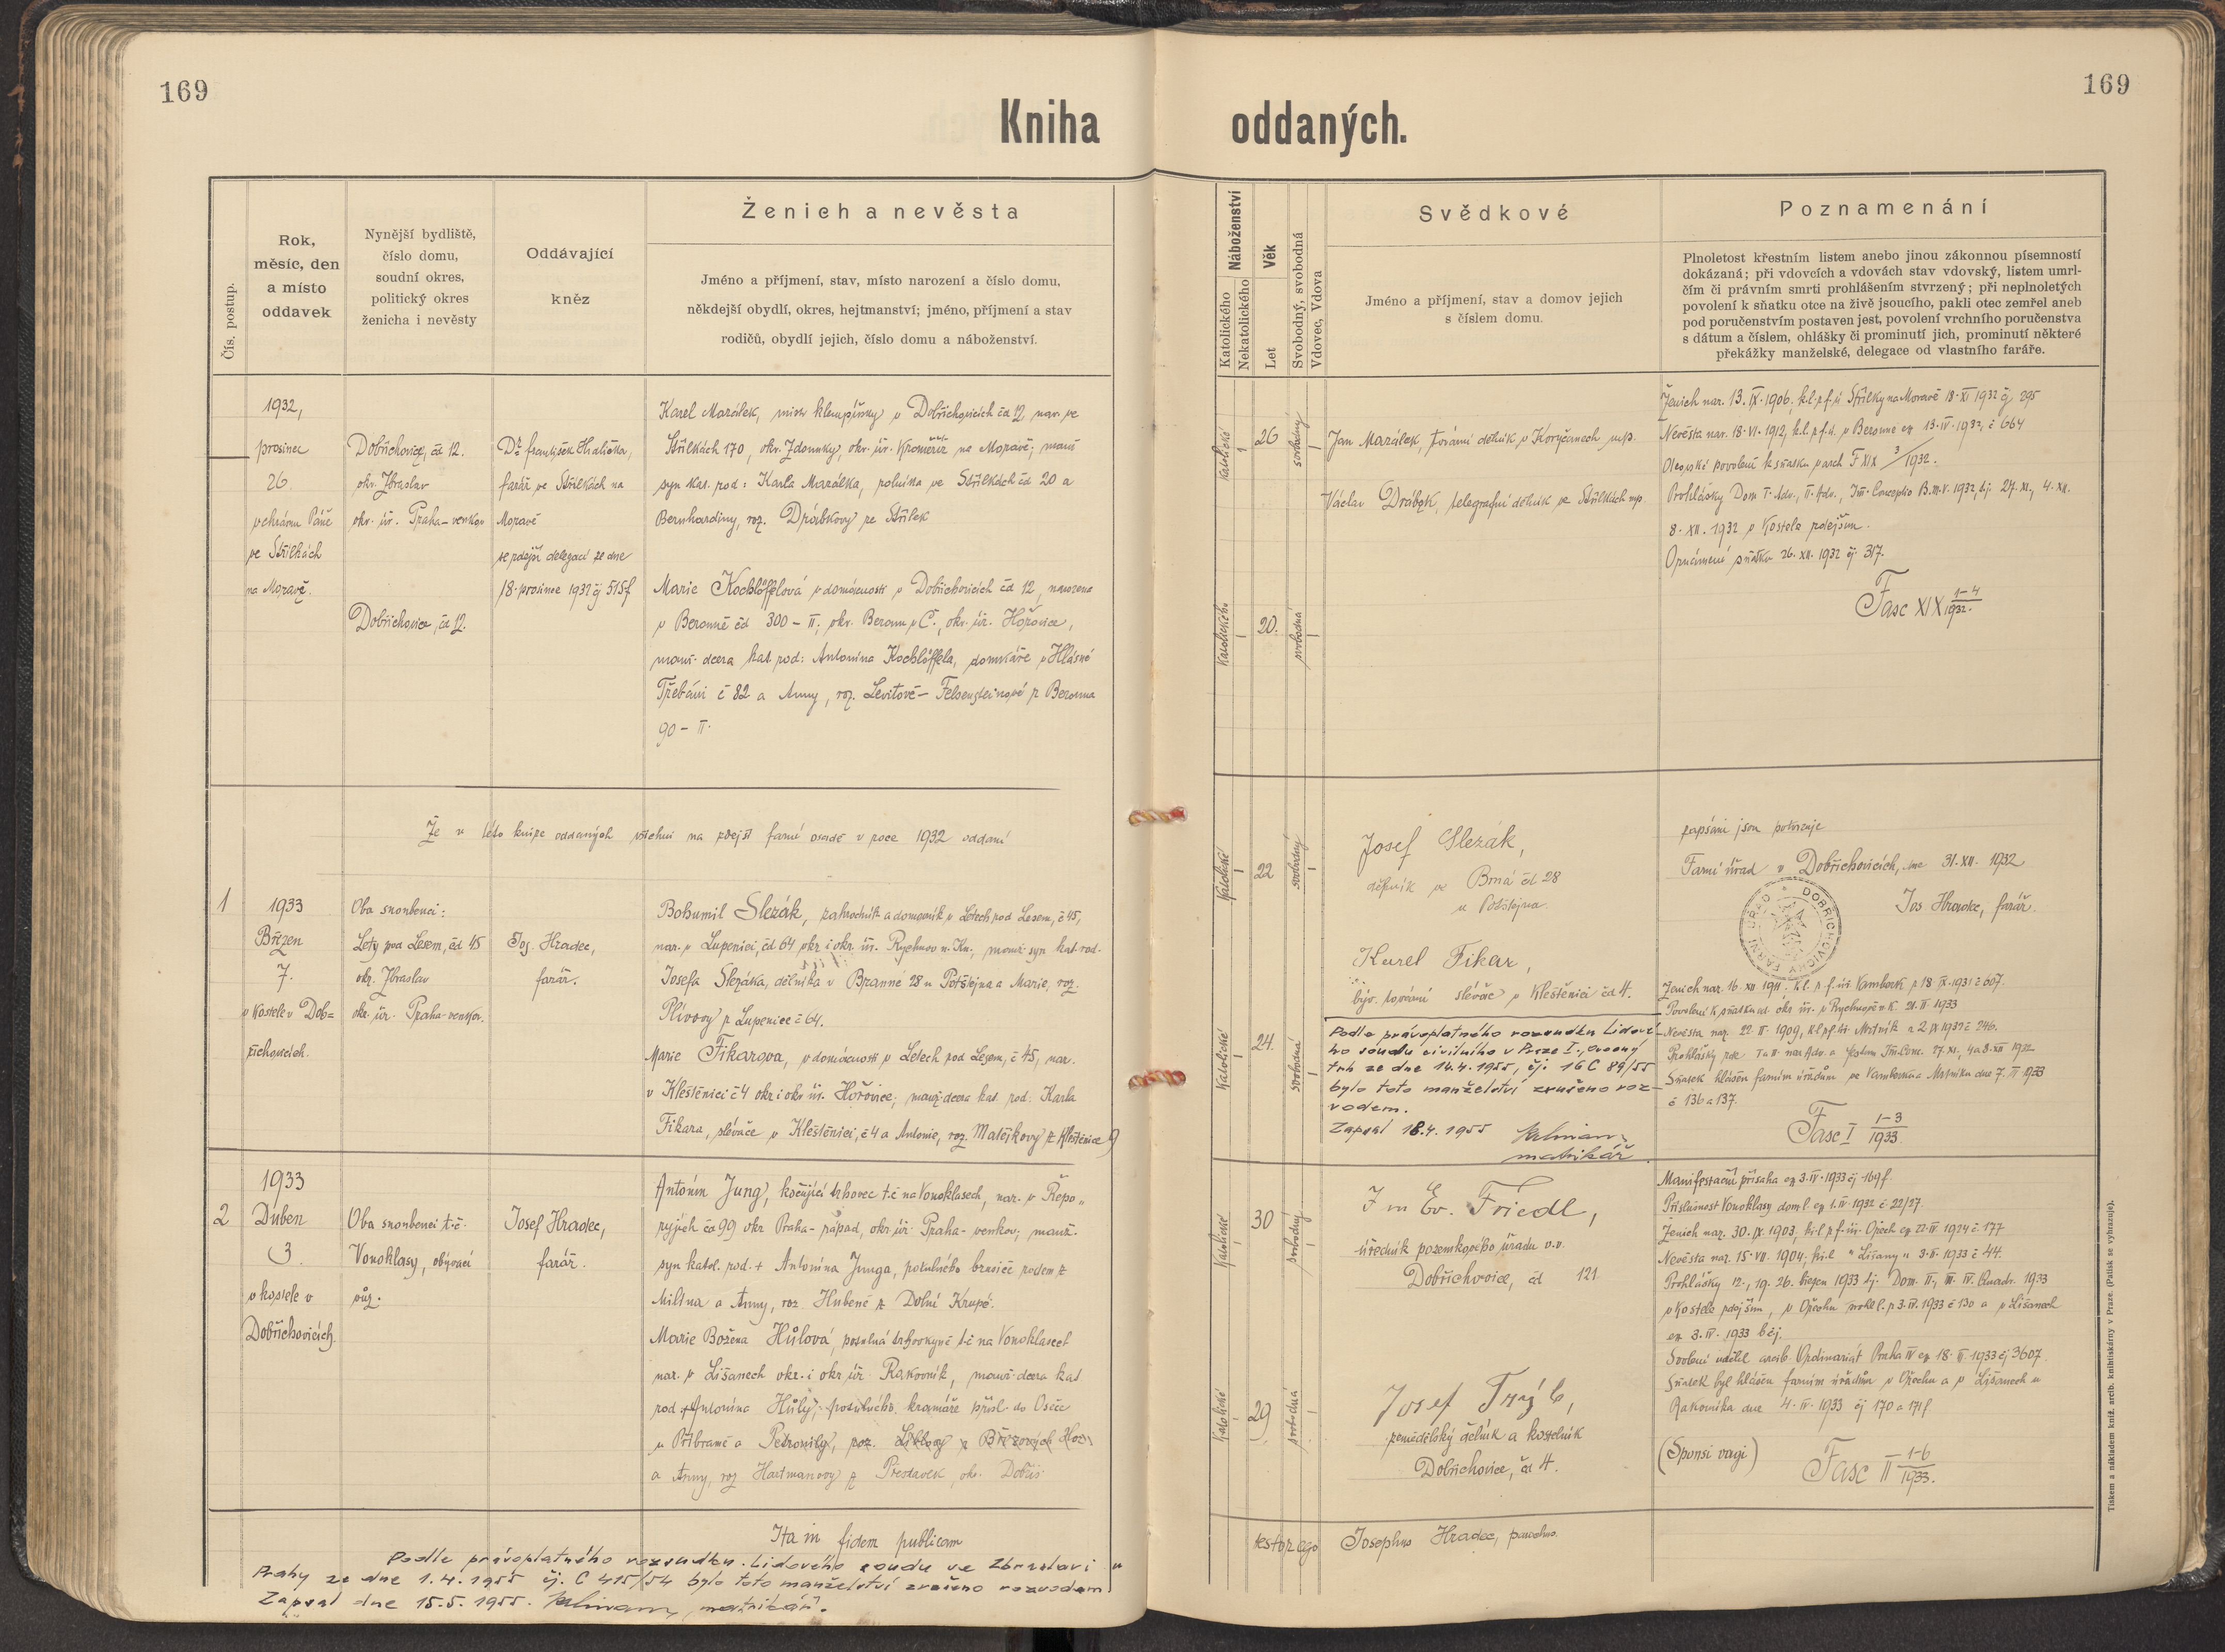 169
169
Kniha oddaných.
Čís. postup.
Rok,
měsíc, den
a místo
oddavek
Nynější bydliště,
číslo domu,
soudní okres,
politický okres
ženicha i nevěsty
Oddávající
kněz
Ženich a nevěsta
Jméno a příjmení, stav, místo narození a číslo domu,
někdejší obydlí, okres, hejtmanství; jméno, příjmení a stav
rodičů, obydlí jejich, číslo domu a náboženství.
Náboženství
Katolického
Nekatolického
Věk
Let
Svobodný, svobodná
Vdovec, Vdova
Svědkové
Jméno a příjmení, stav a domov jejich
s číslem domu.
Poznamenání
Plnoletost křestním listem anebo jinou zákonnou písemností
dokázaná; při vdovcích a vdovách stav vdovský, listem umrl-
čím či právním smrti prohlášením stvrzený; při neplnoletých
povolení k sňatku otce na živě jsoucího, pakli otec zemřel aneb
pod poručenstvím postaven jest, povolení vrchního poručenstva
s dátum a číslem, ohlášky či prominutí jich, prominutí některé
překážky manželské, delegace od vlastního faráře.
1932,
prosinec
26.
v chrámu Páně
ve Střílkách
na Moravě.
Dobřichovice, čd 12.
okr. Zbraslav
okr. úř. Praha-venkov
Dobřichovice, čd 12.
Dr František Hralička,
farář ve Střílkách na
Moravě
se zdejší delegací ze dne
18. prosince 1932 čj 515f
Karel Mazálek, mistr klempířský v Dobřichovicích čd 12, nar. ve
Střílkách 170, okr. Zdounky, okr. úř. Kroměříž na Moravě; manž
syn kat. rod: Karla Mazálka, rolníka ve Střílkách čd 20 a
Bernhardiny, roz. Drábkovy ze Střílek
Marie Kochlöfflová v domácnosti v Dobřichovicích čd 12, narozena
v Berouně čd 300-II, okr. Beroun v Č., okr. úř. Hořovice,
manž. dcera kat rod: Antonína Kochlöffela, domkáře v Hlásné
Třebáni č 82 a Anny, roz. Levitové - Felsensteinové z Berouna
90-II.
katolické
26
svobodný
katolického
20.
svobodná
Jan Mazálek, tovární dělník v Koryčanech mp.
Václav Drábek, telegrafní dělník ve Střílkách mp.
Ženich nar. 13. IX. 1906, k.l. f. ú Střílky na Moravě 18. XI 1932 čj 295
Nevěsta nar. 18. VI. 1912, k.l. f. ú. v Berouně 13. IV. 1932, č 664
Otcovské povolení k sňatku v arch F XIX 3/1932.
Prohlášky Dom I. Adv., II. Adv., Im. Conceptio B.m.V. 1932, tj. 27. XI., 4. XII.
8. XII. 1932 v kostele zdejším.
Oznámení sňatku 26. XII. 1932 čj. 317.
Fasc XIX 1-4/1932.
Že v této knize oddaných všichni na zdejší farní osadě v roce 1932 oddaní
zapsáni jsou potvrzuje
Farní úřad v Dobřichovicích, dne 31. XII. 1932
Jos Hradec, farář.
FARNÍ ÚŘAD DOBŘICHOVICKÝ
1
1933
Březen
7.
v kostele v Dob=
řichovicích.
Oba snoubenci:
Lety pod Lesem, čd 45
okr. Zbraslav
okr. úř. Praha-venkov.
Jos. Hradec,
farář.
Bohumil Slezák, zahradník a domovník v Letech pod Lesem, č 45,
nar. v Lupenici, čd 64 okr i okr. úř. Rychnov n. Kn., manž. syn kat. rod.
Josefa Slezáka, dělníka v Branné 28 u Potštejna a Marie, roz.
Plívovy z Lupenice č 64.
Marie Fikarova, v domácnosti v Letech pod Lesem, č 45, nar.
v Kleštěnici č 4 okr. i okr úř. Hořovice; manž. dcera kat. rod. Karla
Fikara, slévače v Kleštěnici, č 4 a Antonie, roz. Matějkovy z Kleštěnice 9)
Katolické
22
svobodný
Katolické
24.
svobodná
Josef Slezák,
dělník ve Brné čd 28
u Potštejna.
Karel Fikar,
býv. tovární slévač v Kleštěnici čd 4.
Podle právoplatného rozsudku Lidové-
ho soudu civilního v Praze I., Ovocný
trh ze dne 14.4.1955, čj. 16 C 89/55
bylo toto manželství zrušeno roz-
vodem.
Zapsal 18.4.1955
matrikář
Ženich nar. 16. XII 1911. k.l. f. úř. Vamberk 18 IX. 1931 č 607.
Povolení k sňatku od. okr úř. v Rychnově n. K. 21. II. 1933
Nevěsta nar. 22. II. 1909, k.l. f. úř. Mrtník 2. IX 1932 č 246.
Prohlášky I a II. ned. Adv. a festum Im. Conc. 27. XI., 4 a 8. XII 1932
Sňatek hlášen farním úřadům ve Vamberku a Mrtníku dne 7. III 1933
č 136 a 137.
Fasc I 1-3/1933
2
1933
Duben
3.
v kostele v
Dobřichovicích.
Oba snoubenci t.č.
Vonoklasy, obývací
vůz.
Josef Hradec,
farář.
Antonín Jung, kočující trhovec t.č na Vonoklasech, nar. v Řepo„
ryjích čd 99 okr. Praha-západ, okr. úř. Praha-venkov; manž.
syn katol. rod. + Antonína Junga, potulného brusiče rodem z
Milína a Anny, roz. Hubené z Dolní Krupé.
Marie Božena Hůlová, potulná trhovkyně t.č na Vonoklasech
nar. v Lišanech okr. i okr úř. Rakovník, manž. dcera kat
rod. + Antonína Hůly, potulného kramáře přísl. do Oseče
u Příbramě a Petronily, roz. Liblovy z Březových Hor
a Anny, roz Hartmanovy z Přestavlk, okr. Dobříš
Katolické
30
svobodný
Katolické
29
svobodná
J m Ev. Friedl,
úředník pozemkového úřadu v.v.
Dobřichovice, čd 121
Josef Trýb,
zemědělský dělník a kostelník
Dobřichovice, čd 4.
Manifestační přísaha 3. IV. 1933 čj 169f.
Příslušnost Vonoklasy dom l. 1. IV. 1932 č 22/27.
Ženich nar. 30. IX 1903, k.l. f. úř. Ořech 22. IV 1924 č. 177
Nevěsta nar. 15. VII. 1904, k.l. " Lišany " 3. II. 1933 č 44.
Prohlášky 12., 19. 26. březen 1933 tj. Dom. II., III. IV. Quadr. 1933
v kostele zdejším, v Ořechu 3. IV. 1933 č 130 a v Lišanech
3. IV. 1933 b čj.
Svolení udělil arcib. Ordinariát Praha IV 18. II. 1933 čj 3607.
Sňatek byl hlášen farním úřadům v Ořechu a v Lišanech u
Rakovníka dne 4. IV. 1933 čj 170 a 171f
(Sponsi vagi)
Fasc II 1-6/1933.
Ita in fidem publicam
testor ego Josephus Hradec, parochus.
Podle právoplatného rozsudku Lidového soudu ve Zbraslavi u
Prahy ze dne 1.4.1955 čj. C 415/54 bylo toto manželství zrušeno rozvodem
Zapsal dne 15.5.1955. matrikář.
Tiskem a nákladem kníž. arcib. knihtiskárny v Praze. (Patisk se vyhrazuje).